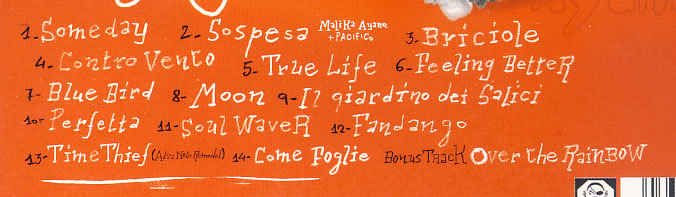 1- Someday 2- Sospesa Malika Ayane + Pacifico 3- Briciole
4- Contro Vento 5- True Life 6- Feeling Better
7- Blue Bird 8- Moon 9- Il giardino dei Salici
10- Perfetta 11- Soul Waver 12- Fandango
13- Time Thief (Alva Noto Remodel) 14- Come Foglie Bonus Track Over the Rainbow